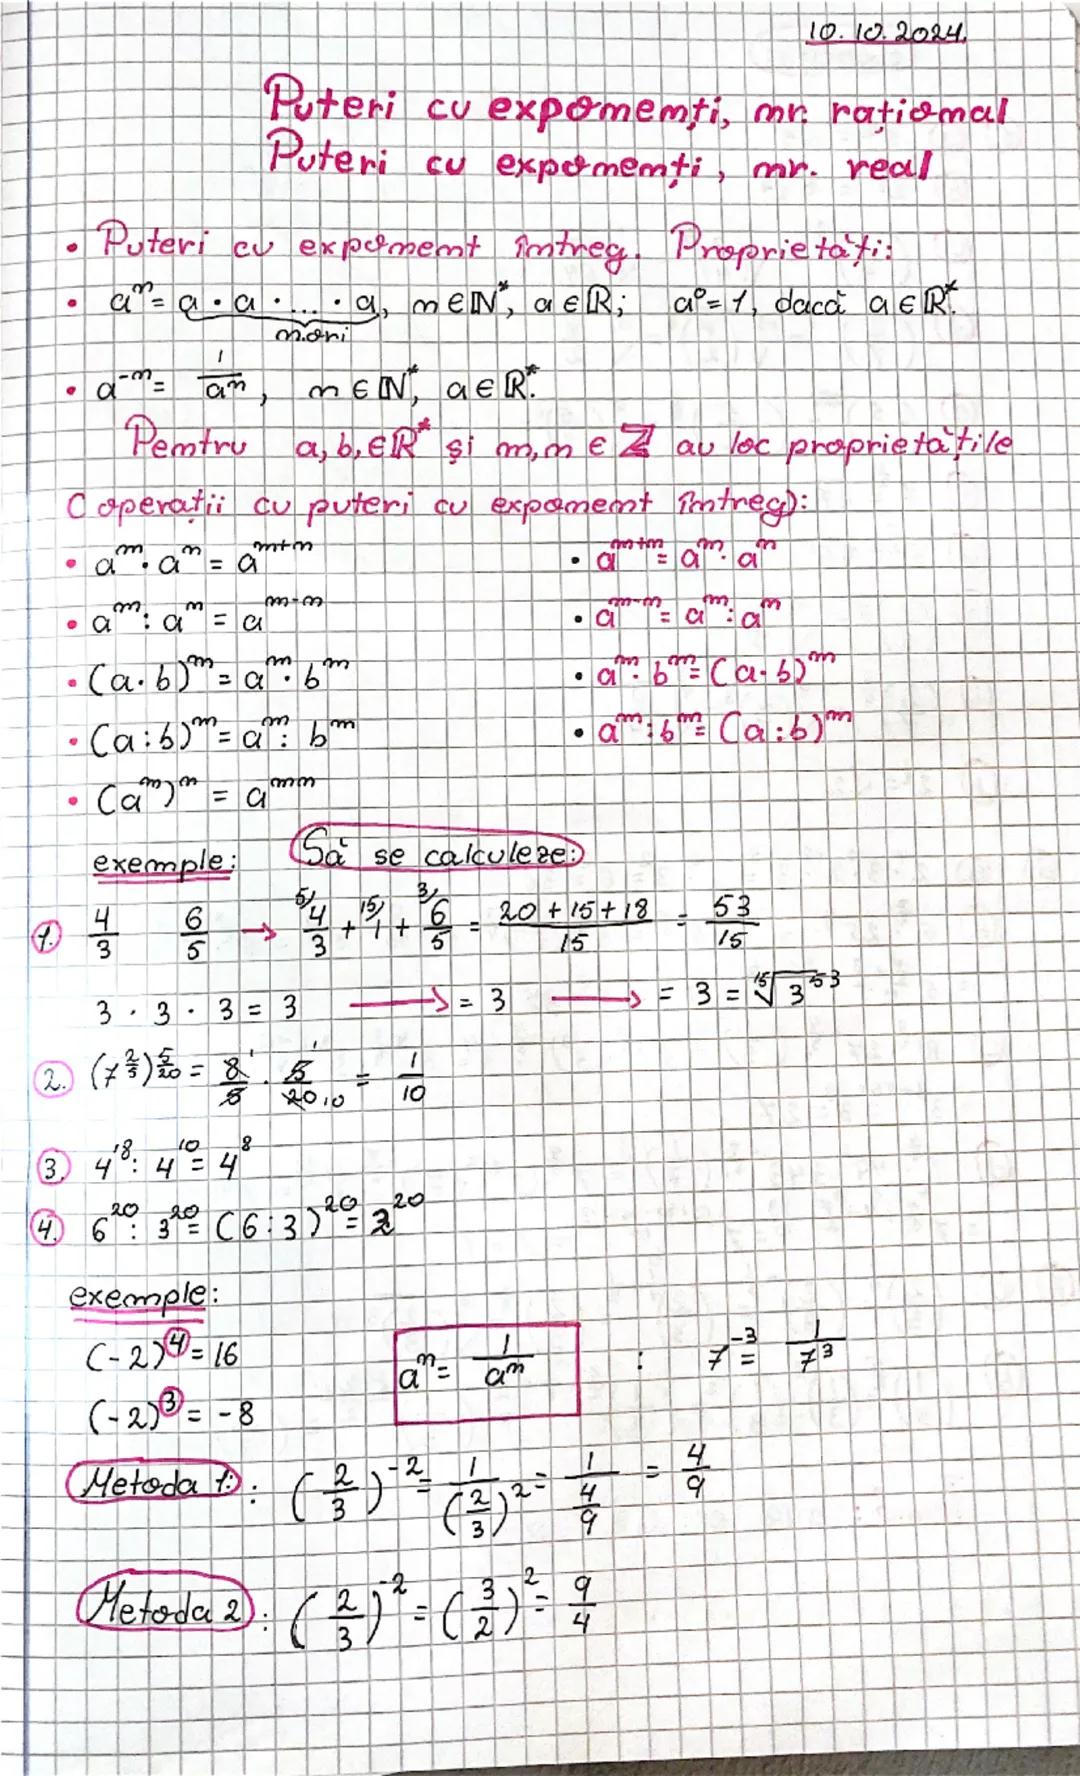 10.10.2024.
Puteri cu exponenți, nr. rațional
Puteri cu exponenți, nr. real
• Puteri cu exponent întreg. Proprietăți:
• aⁿ = a · a · ... · a, n ∈ ℕ*, a ∈ ℝ; a⁰ = 1, dacă a ∈ ℝ*.
n.ori
• a⁻ⁿ = 1/aⁿ, n ∈ ℕ*, a ∈ ℝ*.
Pentru a, b, ∈ ℝ* și m, n ∈ ℤ au loc proprietățile
(operații cu puteri cu exponent întreg):
• aᵐ · aⁿ = aᵐ⁺ⁿ • aᵐ⁺ⁿ = aᵐ · aⁿ
• aᵐ : aⁿ = aᵐ⁻ⁿ • aᵐ⁻ⁿ = aᵐ : aⁿ
• (a·b)ᵐ = aᵐ · bᵐ • aᵐ · bᵐ = (a·b)ᵐ
• (a:b)ᵐ = aᵐ : bᵐ • aᵐ : bᵐ = (a:b)ᵐ
• (aᵐ)ⁿ = aᵐⁿ
exemple: Să se calculeze:
1. 4/3 6/5 → ⁵⁾4/3 + ¹⁵⁾1 + ³⁾6/5 = (20 + 15 + 18)/15 = 53/15
3 · 3 · 3 = 3 → = 3 → = 3 = ¹⁵√3⁵³
2. (7^(2/5))^(5/20) = 8/5 · 5/20 = 1/10
3. 4¹⁸ : 4¹⁰ = 4⁸
4. 6²⁰ : 3²⁰ = (6:3)²⁰ = 2²⁰
exemple:
(-2)⁴ = 16 aⁿ = 1/aⁿ : 7⁻³ = 1/7³
(-2)³ = -8
Metoda 1: : (2/3)⁻² = 1/(2/3)² = 1/(4/9) = 4/9
Metoda 2 : (2/3)⁻² = (3/2)² = 9/4